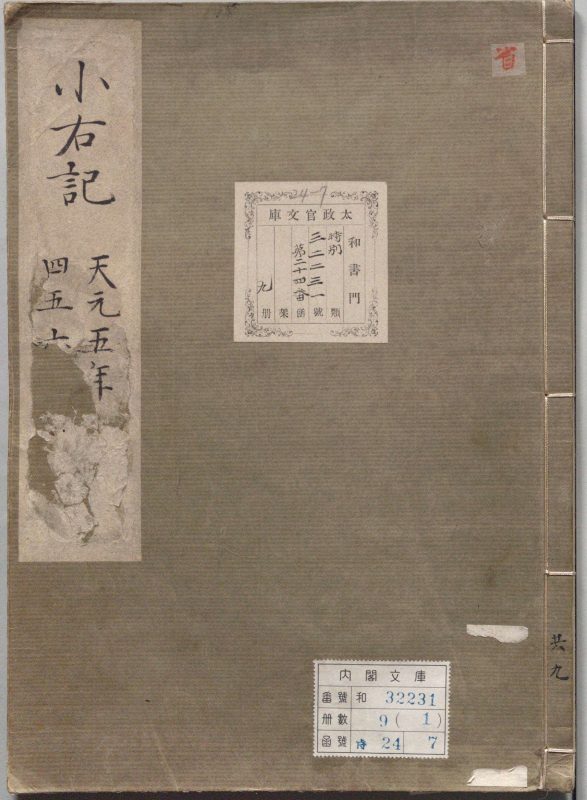 省
小右記
天元五年
四五六
24-7
太政官文庫
和書門
特別
三二二三一
第二十四番
九
類號函架册
共九
内閣文庫
番號 和 32231
册數 9(1)
函號 特 24 7